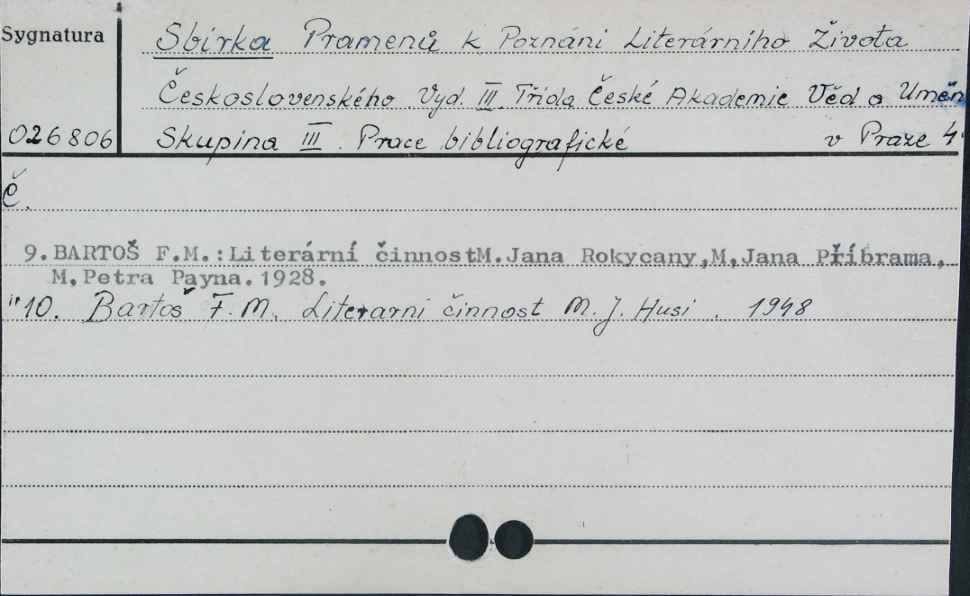 Sygnatura
Sbírka Pramenů k Poznáni Literárního Života
Československého Vyd. III Třída České Akademie Věd a Uměn
026806 Skupina III. Prace bibliografické v Praze 4°
Č.
9. BARTOŠ F.M.: Literární činnostM.Jana Rokycany,M,Jana Příbrama,
M.Petra Payna.1928.
"10. Bartoš F.M. Literarni činnost M.J. Husi. 1948